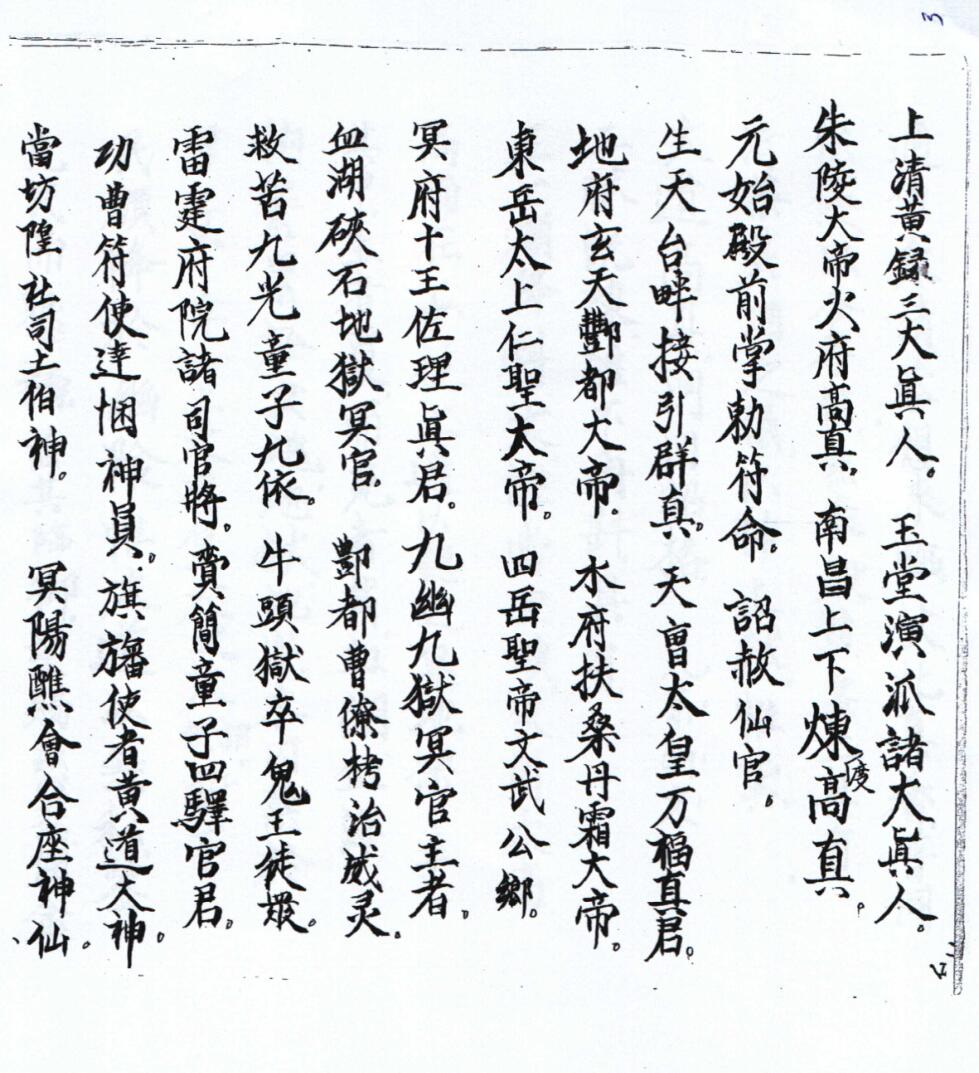 上清黃録三大眞人。玉堂演派諸大眞人。
朱陵大帝火府高真。南昌上下煉度高真。
元始殿前掌勅符命。詔赦仙官。
生天台畔接引群真。天曺太皇万福真君。
地府玄天酆都大帝。水府扶桑丹霜大帝。
東岳太上仁聖大帝。四岳聖帝文武公鄉。
冥府十王佐理眞君。九幽九獄冥官主者。
血湖硤石地獄冥官。酆都曹僚栲治威灵。
救苦九光童子九依。牛頭獄卒鬼王徒眾。
雷霆府院諸司官將。賫簡童子四驛官君。
功曹符使達悃神員。旗旛使者黃道大神。
當坊隍社司土伯神。冥陽醮會合座神仙。
3